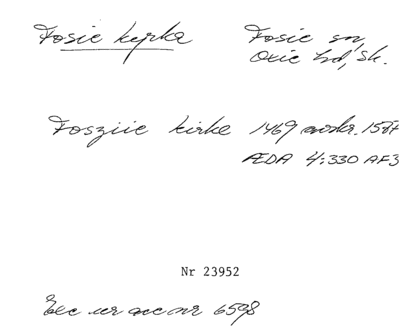 Fosie kyrka Fosie sn,
Oxie hd, Sk.
Fosziie kirke 1469 avskr. 158?
ÆDA 4:330 AF3
Nr 23952
Exc ur acc nr 6598